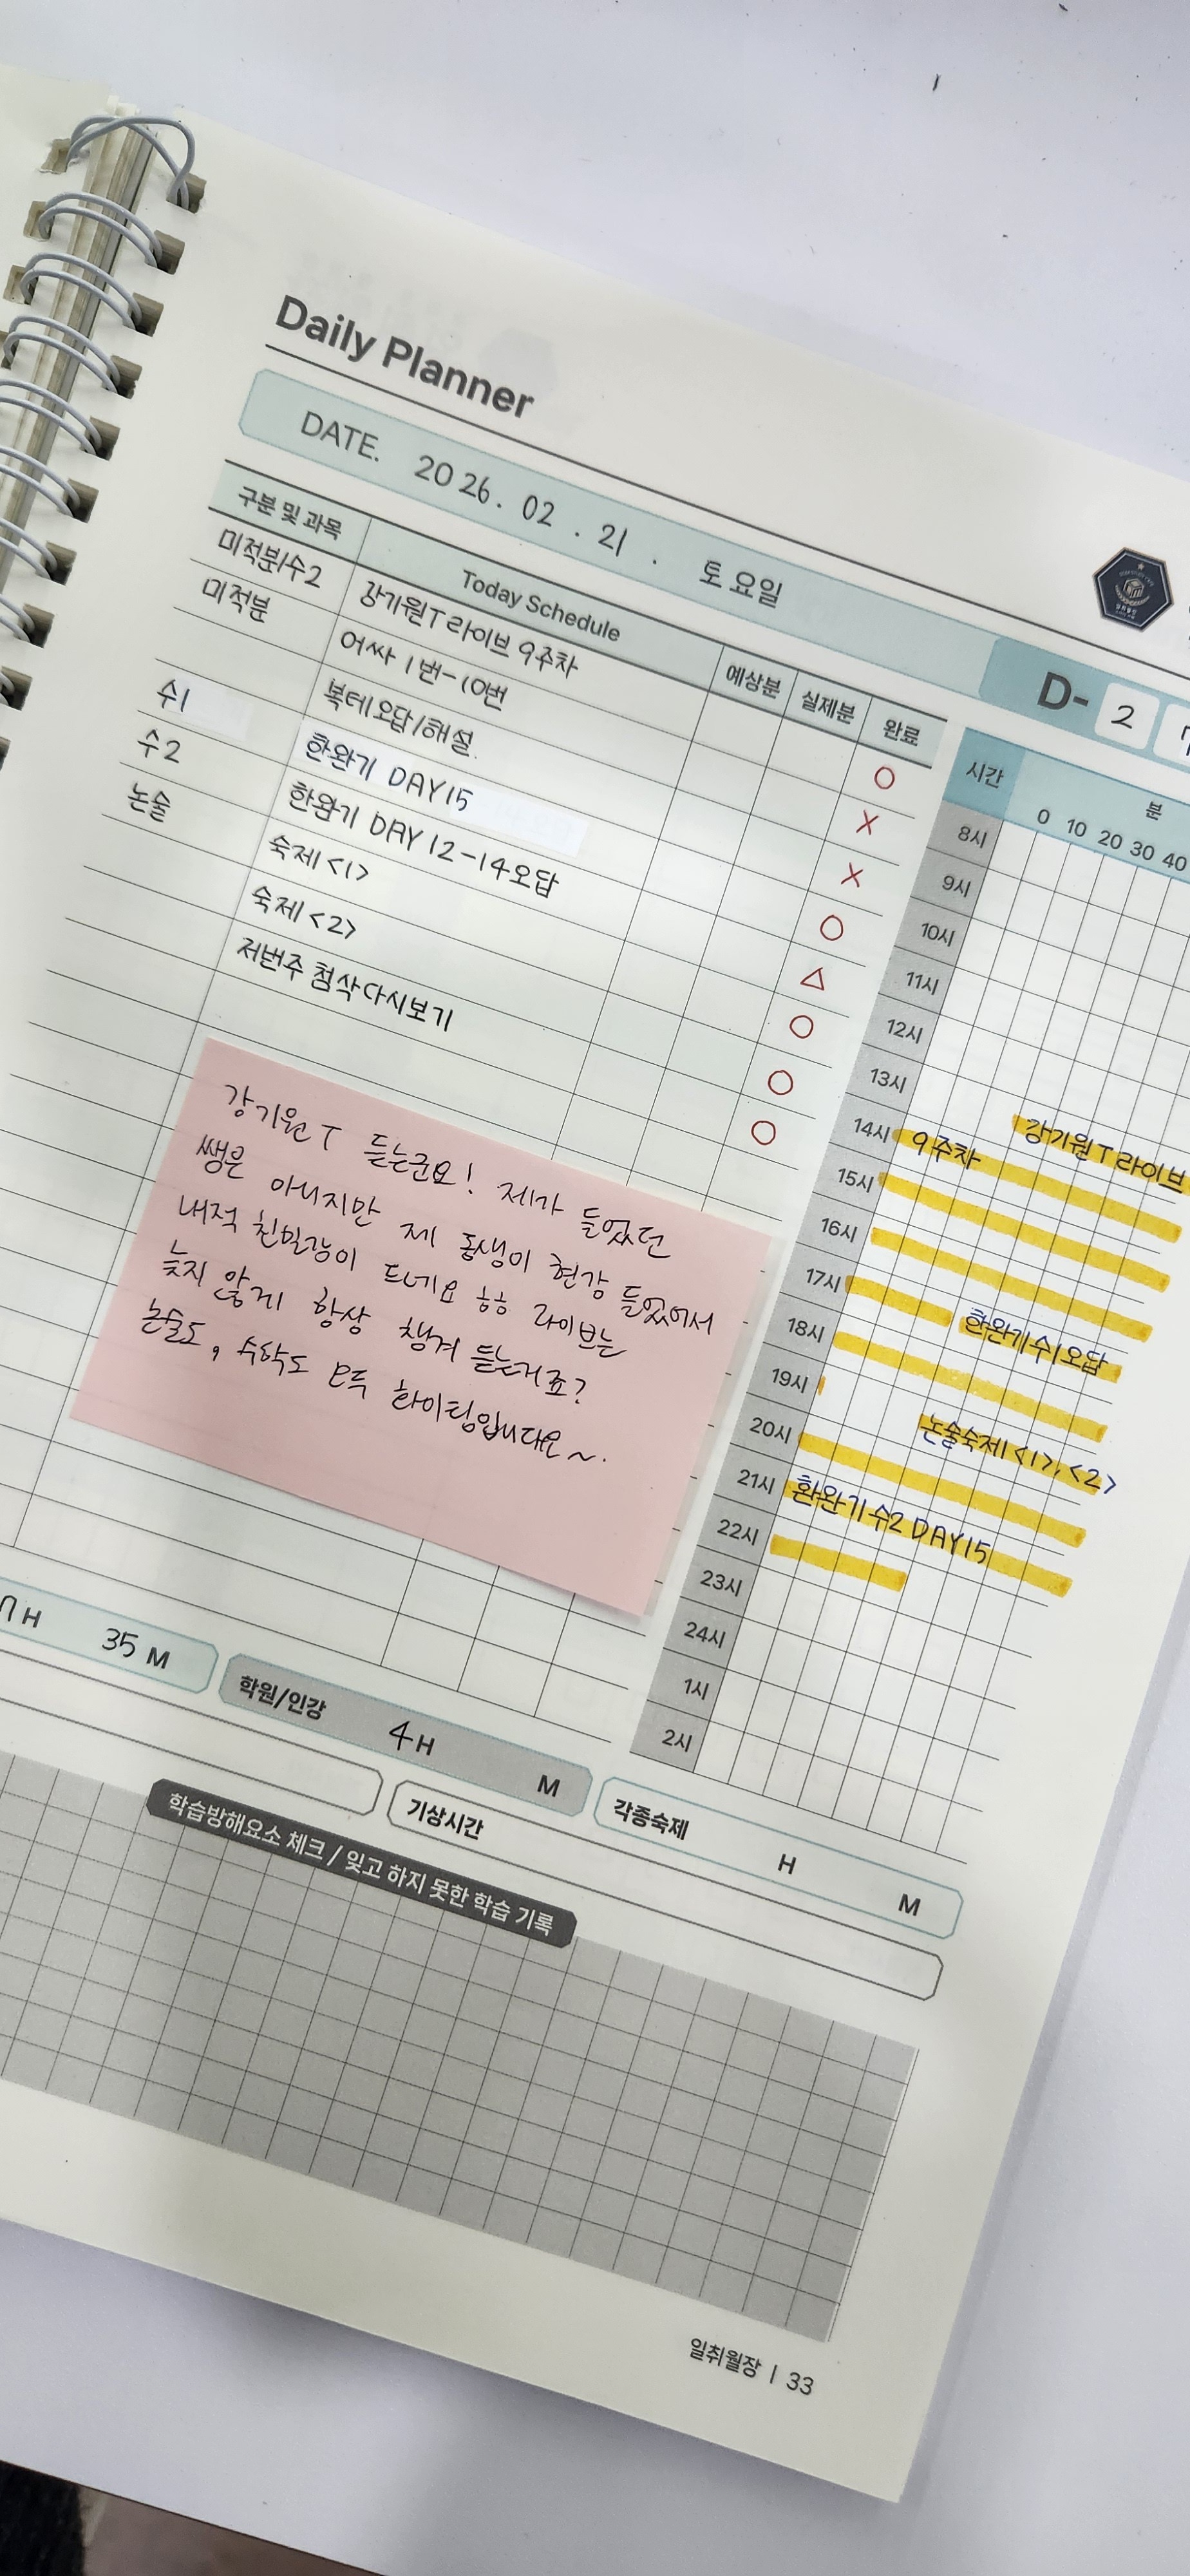 Daily Planner
DATE. 2026. 02. 21. 토요일
D- 2
구분 및 과목 Today Schedule 예상분 실제분 완료
미적분/수2 강기원T 라이브 9주차 O
미적분 어싸 1번-10번 X
복테오답/해설 X
수1 한완기 DAY15 O
수2 한완기 DAY 12-14오답 △
논술 숙제<1> O
숙제<2> O
저번주 첨삭다시보기 O
강기원T 듣는군요! 제가 들었던
쌤은 아니지만 제 동생이 현강 들었어서
내적 친밀감이 드네요 ㅎㅎ 라이브는
늦지 않게 항상 챙겨 듣는거죠?
논술도, 수학도 모두 화이팅입니다요~.
시간 분
0 10 20 30 40
8시
9시
10시
11시
12시
13시 강기원T라이브
14시 9주차
15시
16시
17시 한완기수1오답
18시
19시 논술숙제<1>,<2>
20시
21시 환완기수2 DAY15
22시
23시
24시
1시
2시
H 35 M
학원/인강 4H M
각종숙제 H M
기상시간
학습방해요소 체크 / 잊고 하지 못한 학습 기록
일취월장 | 33